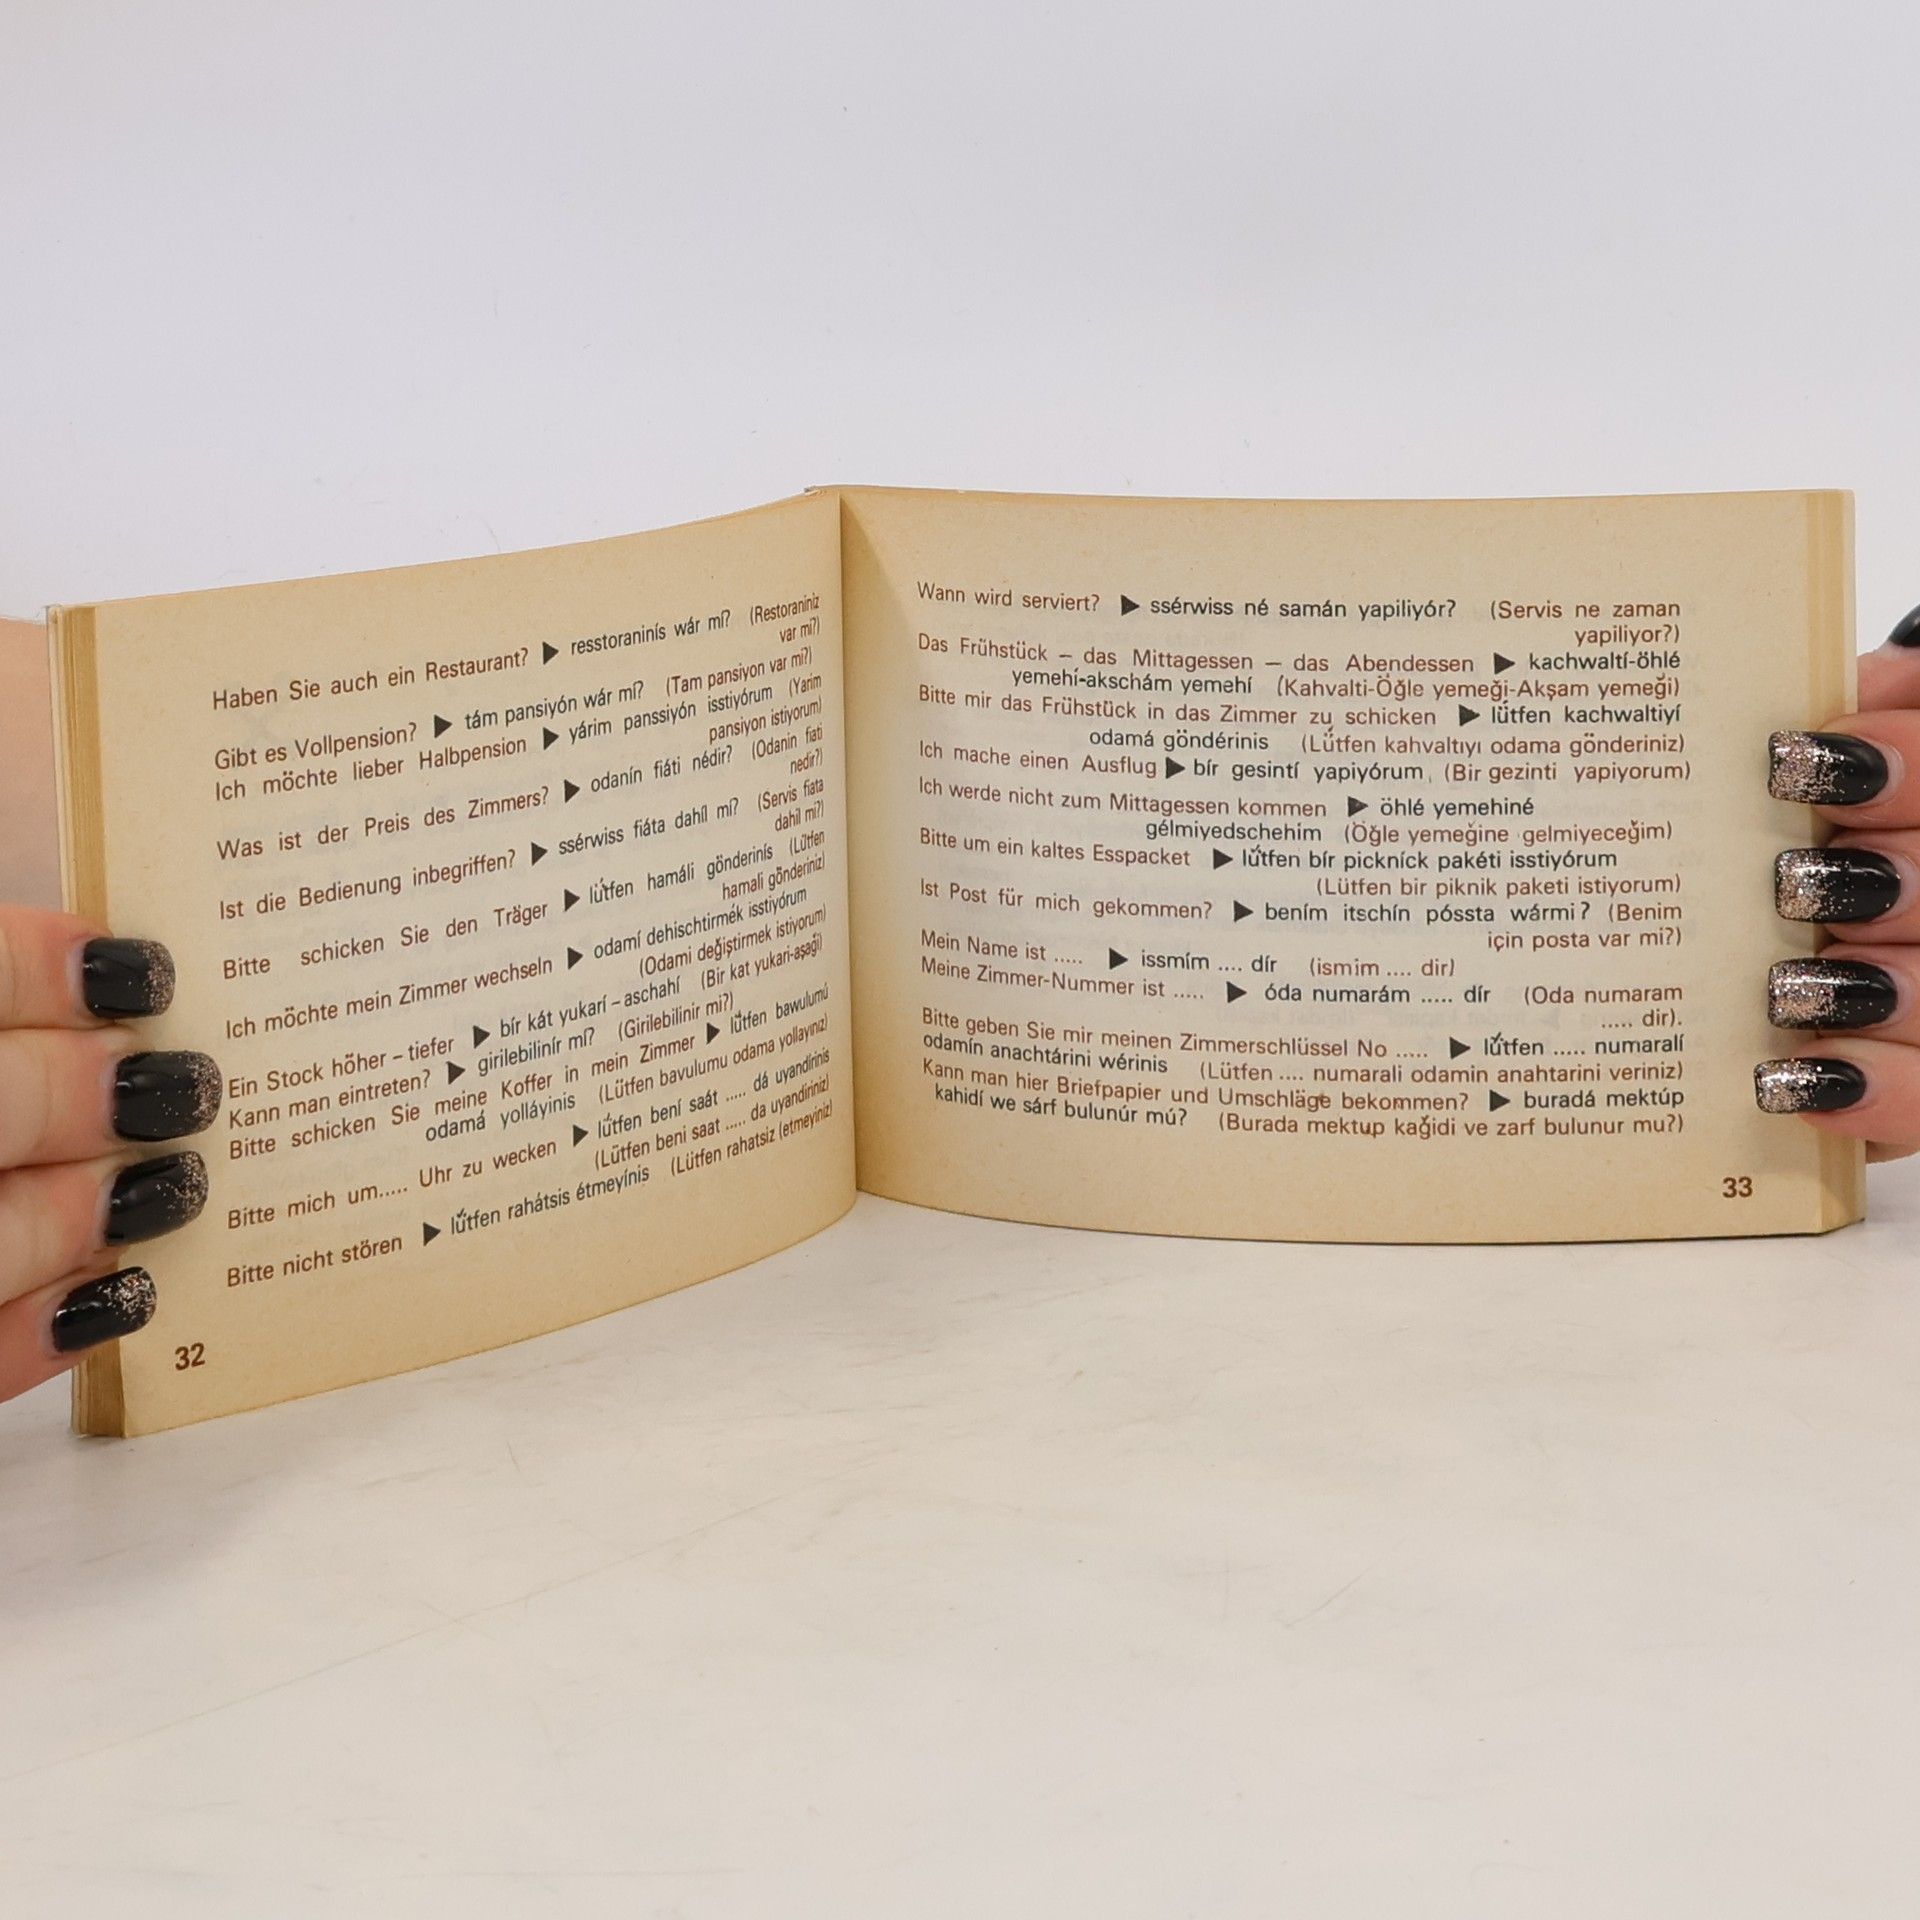 Haben Sie auch ein Restaurant? ▶ resstoraninís wár mí? (Restoraniniz
var mi?)
Gibt es Vollpension? ▶ tám pansiyón wár mí? (Tam pansiyon var mi?)
Ich möchte lieber Halbpension ▶ yárim panssiyón isstiyórum (Yarim
pansiyon istiyorum)
Was ist der Preis des Zimmers? ▶ odanín fiáti nédir? (Odanin fiati
nedir?)
Ist die Bedienung inbegriffen? ▶ ssérwiss fiáta dahíl mí? (Servis fiata
dahil mi?)
Bitte schicken Sie den Träger ▶ lǘtfen hamáli gönderinís (Lütfen
hamali gönderiniz)
Ich möchte mein Zimmer wechseln ▶ odamí dehischtirmék isstiyórum
(Odami değiştirmek istiyorum)
Ein Stock höher – tiefer ▶ bír kát yukarí – aschahí (Bir kat yukari-aşaği)
Kann man eintreten? ▶ girilebilinír mí? (Girilebilinir mi?)
Bitte schicken Sie meine Koffer in mein Zimmer ▶ lǘtfen bawulumú
odamá yolláyinis (Lütfen bavulumu odama yollayınız)
Bitte mich um..... Uhr zu wecken ▶ lǘtfen bení saát ..... dá uyandirinis
(Lütfen beni saat ..... da uyandiriniz)
Bitte nicht stören ▶ lǘtfen rahátsis étmeyínis (Lütfen rahatsiz (etmeyiniz)
32
Wann wird serviert? ▶ ssérwiss né samán yapiliyór? (Servis ne zaman
yapiliyor?)
Das Frühstück – das Mittagessen – das Abendessen ▶ kachwaltí-öhlé
yemehí-akschám yemehí (Kahvalti-Öğle yemeği-Akşam yemeği)
Bitte mir das Frühstück in das Zimmer zu schicken ▶ lǘtfen kachwaltiyí
odamá göndérinis (Lǘtfen kahvaltıyı odama gönderiniz)
Ich mache einen Ausflug ▶ bír gesintí yapiyórum (Bir gezinti yapiyorum)
Ich werde nicht zum Mittagessen kommen ▶ öhlé yemehiné
gélmiyedschehim (Öğle yemeğine gelmiyeceğim)
Bitte um ein kaltes Esspacket ▶ lǘtfen bír pickníck pakéti isstiyórum
(Lütfen bir piknik paketi istiyorum)
Ist Post für mich gekommen? ▶ bením itschín póssta wármi? (Benim
için posta var mi?)
Mein Name ist ..... ▶ issmím .... dír (ismim .... dir)
Meine Zimmer-Nummer ist ..... ▶ óda numarám ..... dír (Oda numaram
..... dir).
Bitte geben Sie mir meinen Zimmerschlüssel No ..... ▶ lǘtfen ..... numaralí
odamín anachtárini wérinis (Lütfen .... numarali odamin anahtarini veriniz)
Kann man hier Briefpapier und Umschläge bekommen? ▶ buradá mektúp
kahidí we sárf bulunúr mú? (Burada mektup kağidi ve zarf bulunur mu?)
33